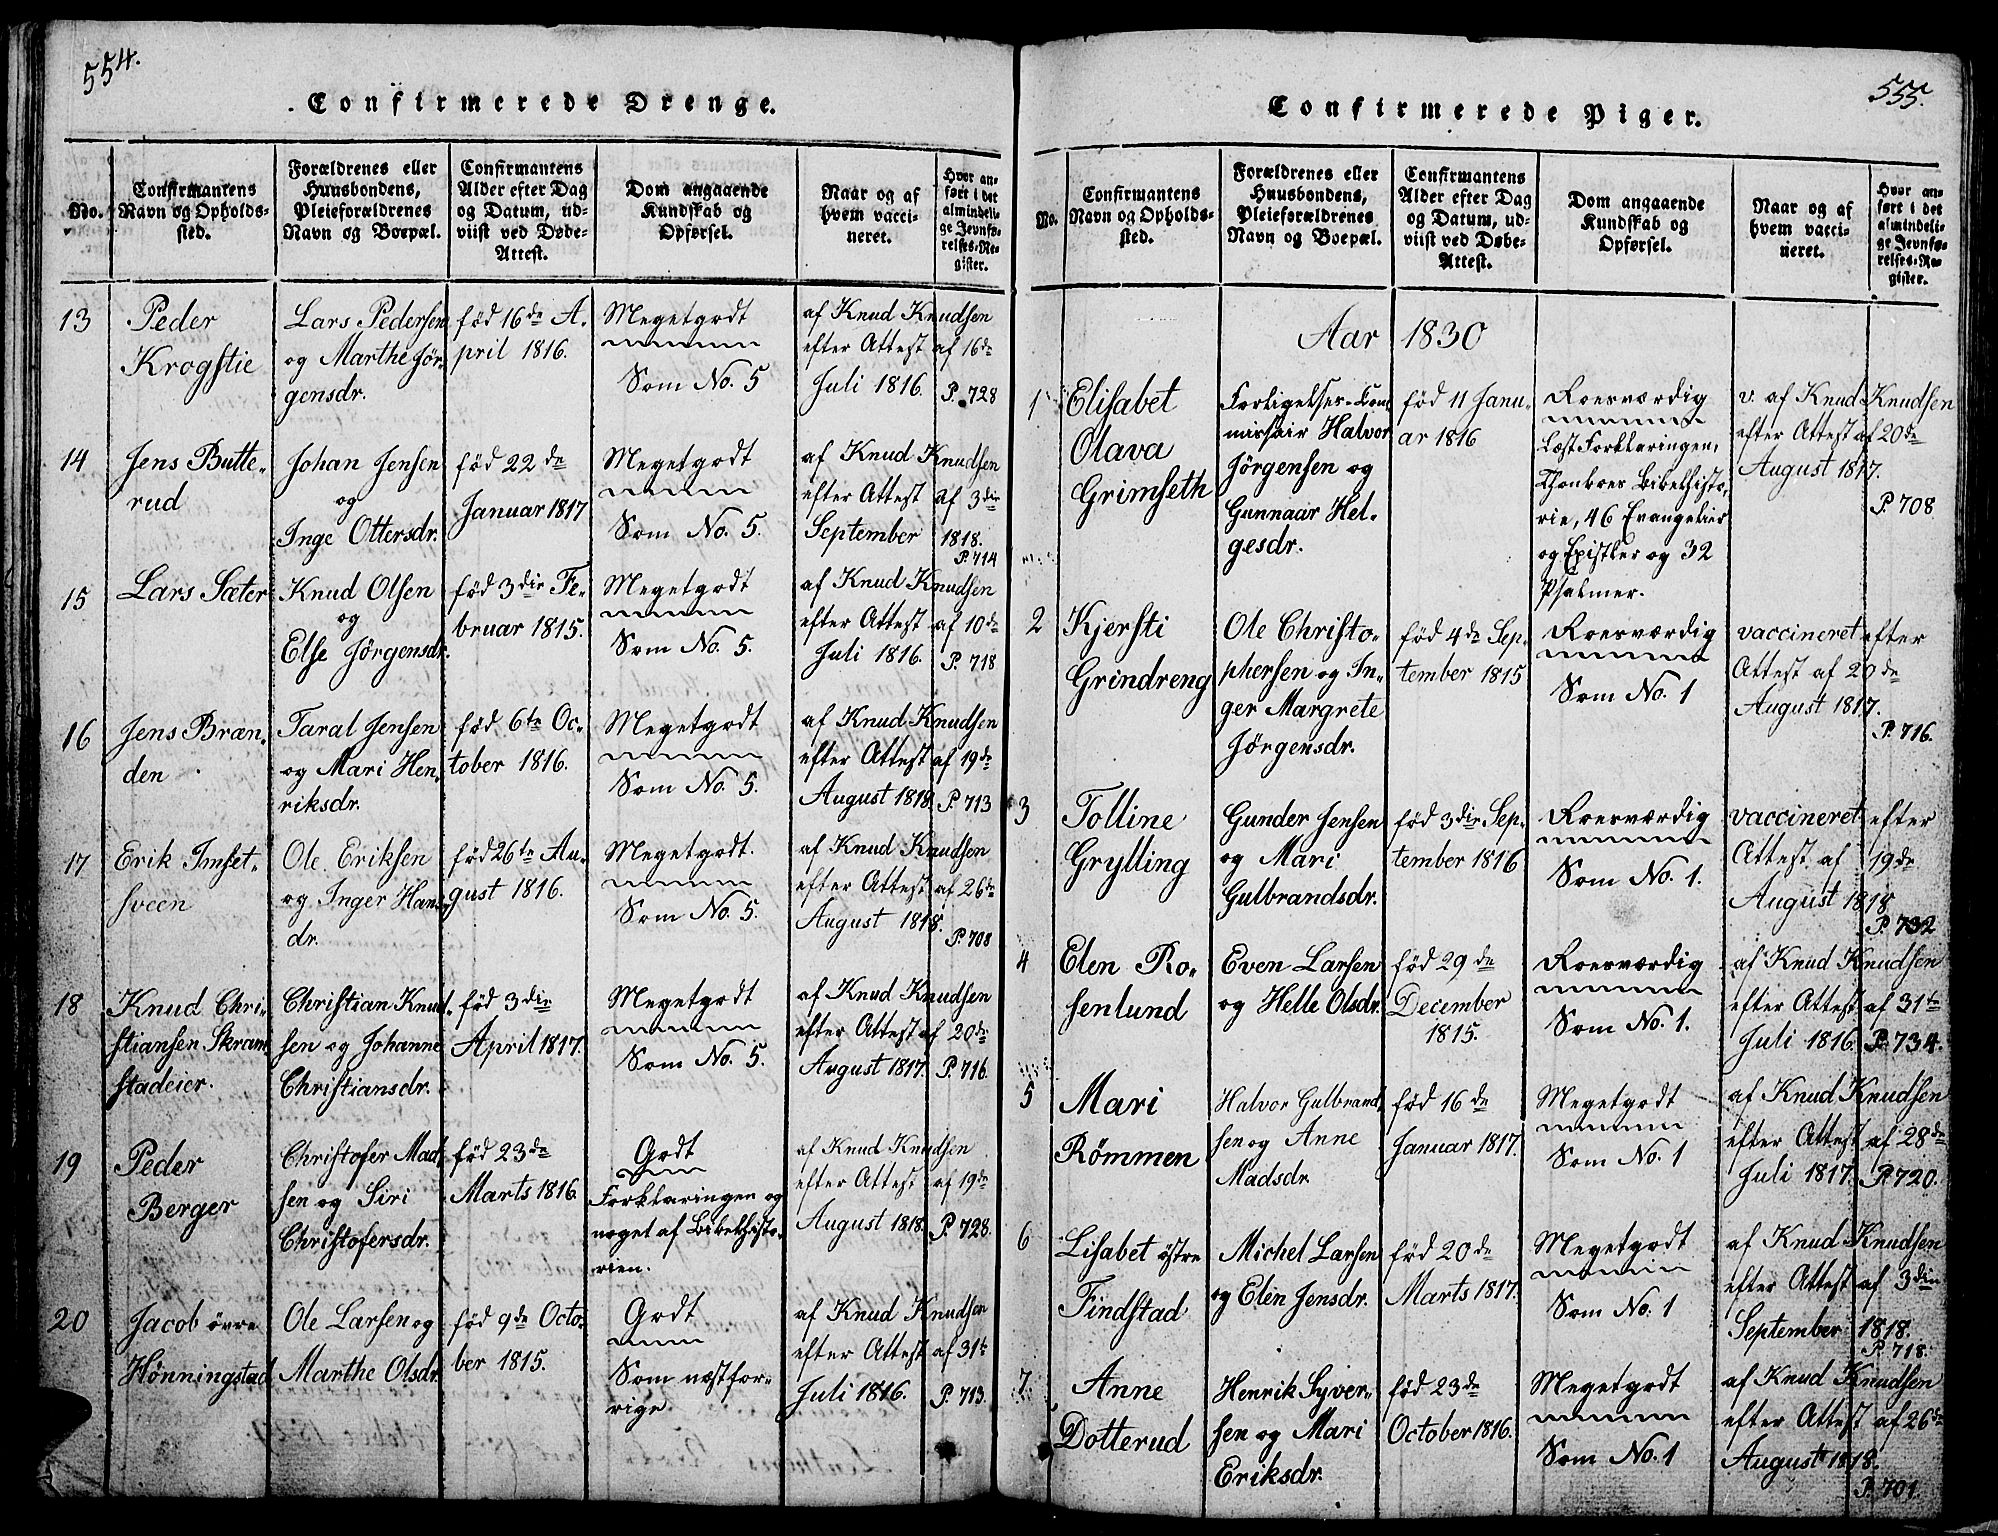 554.
Confirmerede Drenge.
No.
Confirmantens
Navn og Opholds-
sted.
Forældrenes eller
Huusbondens,
Pleieforældrenes
Navn og Boepæl.
Confirmantens
Alder efter Dag
og Datum, ud-
viist ved Døbe-
Attest.
Dom angaaende
Kundskab og
Opførsel.
Naar og af
hvem vacci-
neret.
Hvor an-
ført i det
almindeli-
ge Jevnfø-
relses-Re-
gister.
13
Peder
Krogstie
Lars Pedersen
og Marthe Jör-
gensdr.
föd 16de A-
pril 1816.
Megetgodt
Som No. 5
af Knud Knudsen
efter Attest af 16de
Juli 1816.
P. 728
14
Jens Butte-
rud
Johan Jensen
og
Inge Ottersdr.
föd 22de
Januar 1817
Megetgodt
Som No. 5.
af Knud Knudsen
efter Attest af 3die
September 1818.
P. 714
15
Lars Sæter
Knud Olsen
og
Else Jörgensdr.
föd 3die Fe-
bruar 1815.
Megetgodt
Som No. 5.
af Knud Knudsen
efter Attest af 10de
Juli 1816.
P. 718
16
Jens Bræn-
den
Taral Jensen
og Mari Hen-
riksdr.
föd 6te Oc-
tober 1816.
Megetgodt
Som No. 5.
af Knud Knudsen
efter Attest af 19de
August 1818.
P. 713
17
Erik Imset-
sveen
Ole Eriksen
og Inger Hans-
dr.
föd 26te Au-
gust 1816.
Megetgodt.
Som No. 5.
af Knud Knudsen
efter Attest af 26te
August 1818.
P. 708
18
Knud Chri-
stiansen Skram-
stadeier.
Christian Knud-
sen og Johanne
Christiansdr.
föd 3die
April 1817.
Megetgodt
Som No. 5.
af Knud Knudsen
efter Attest af 20de
August 1817.
P. 716.
19
Peder
Berger
Christofer Mad-
sen og Siri
Christofersdr.
föd 23de
Marts 1816
Godt
Forklaringen og
noget af Bibelhisto-
rien.
af Knud Knudsen
efter Attest af 19de
August 1818.
P. 728.
20
Jacob övre
Hönningstad
Ole Larsen og
Marthe Olsdr.
föd 9de Octo-
ber 1815.
Godt
Som næstfor-
rige
af Knud Knudsen
efter Attest af 31te
Juli 1816.
P. 713.
555.
Confirmerede Piger.
No.
Confirmantens
Navn og Opholds-
sted.
Forældrenes eller
Huusbondens,
Pleieforældrenes
Navn og Boepæl.
Confirmantens
Alder efter Dag
og Datum, ud-
viist ved Døbe-
Attest.
Dom angaaende
Kundskab og
Opførsel.
Naar og af
hvem vacci-
neret.
Hvor an-
ført i det
almindeli-
ge Jevnfø-
relses-Re-
gister.
Aar 1830
1
Elisabet
Olava
Grimseth
Forligelses-Com-
missair Halvor
Jörgensen og
Gunnaar Hel-
gesdr.
föd 11 Janu-
ar 1816
Roesværdig
Læst Forklaringen,
Thonboes Bibelhisto-
rie, 46 Evangelier
og Epistler og 32
Psalmer.
v. af Knud Knudsen
efter Attest af 20de
August 1817.
P. 708
2
Kjersti
Grindreng
Ole Christo-
phersen og In-
ger Margrete
Jörgensdr.
föd 4de Sep-
tember 1815
Roesværdig
Som No. 1
vaccineret efter
Attest af 20de
August 1817.
P. 716.
3
Tolline
Grylling
Gunder Jensen
og Mari
Gulbrandsdr.
föd 3die Sep-
tember 1816
Roesværdig
Som No. 1.
vaccineret efter
Attest af 19de
August 1818
P. 732
4
Elen Ro-
senlund
Even Larsen
og Helle Olsdr.
föd 29de
December
1815.
Roesværdig
Som No. 1.
af Knud Knudsen
efter Attest af 31te
Juli 1816.
P. 734.
5
Mari
Römmen
Halvor Gulbrand-
sen og Anne
Madsdr.
föd 16de
Januar 1817.
Megetgodt
Som No. 1
af Knud Knudsen
efter Attest af 28de
Juli 1817.
P. 720.
6
Lisabet östre
Findstad
Michel Larsen
og Elen Jensdr.
föd 20de
Marts 1817.
Megetgodt
Som No. 1
af Knud Knudsen
efter Attest af 3die
September 1818.
P. 718.
7
Anne
Dotterud
Henrik Syver-
sen og Mari
Eriksdr.
föd 23de
October 1816.
Megetgodt
Som No. 1
af Knud Knudsen
efter Attest af 26de
August 1818.
P. 701.